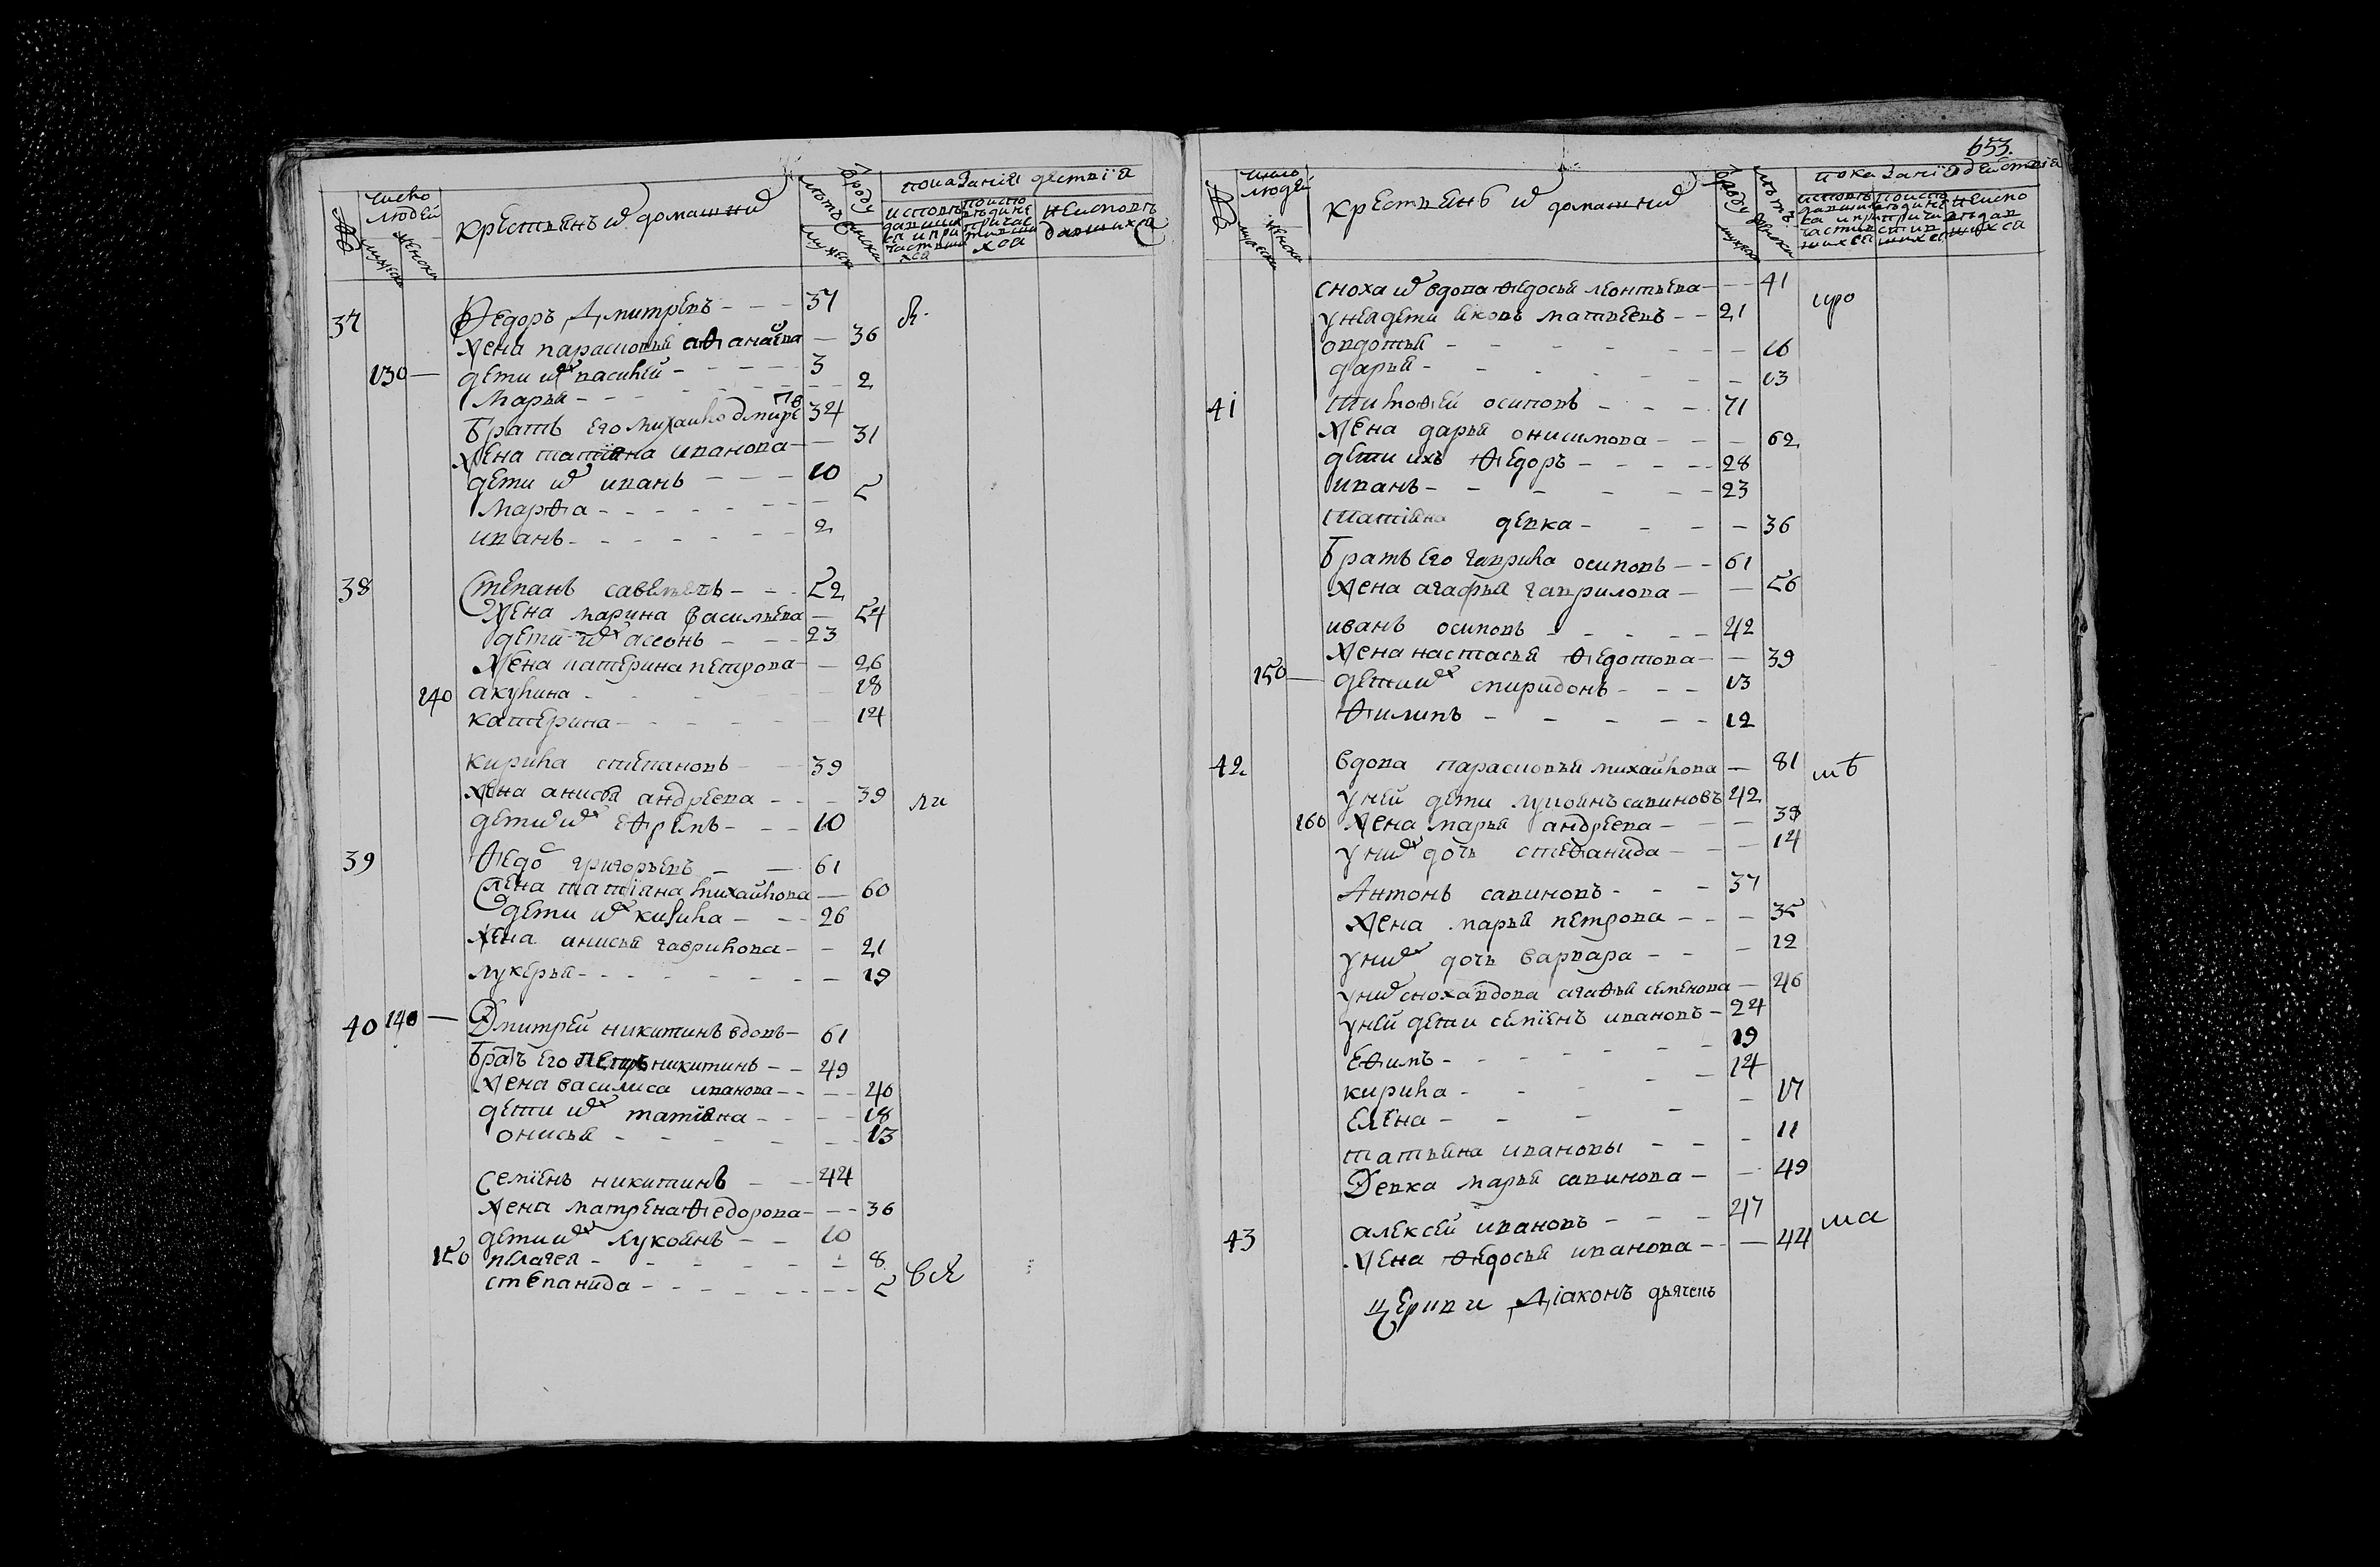 число людей
мужеска
женска
крестьянъ и домашнихъ
показания действія
37 Федоръ Дмитревъ - - - 37
жена парасковья афанасева - 36
130 — дети их василей - - - - - 3
Марья - - - - - - - 2
Братъ его михаило дмитревъ 34
жена татияна иванова - - 31
дети их иванъ - - - 10
Марфа - - - - - - - 5
иванъ - - - - - - - 2
38 Степанъ савельевъ - - - 52
жена марина васильева - 54
дети их аксонъ - - - 23
жена катерина петрова - - 26
140 акулина - - - - - 18
катерина - - - - - - 14
кирила степановъ - - - 39
жена анисья андреева - - - 39
дети их ефремъ - - - 10
39 Федос григорьевъ - - 61
жена татияна михайлова - 60
дети их кирила - - - 26
жена анисья гаврилова - - 21
лукерья - - - - - - - 19
40 140 — Дмитрей никитинъ вдовъ - 61
Братъ его петръ никитинъ - - 49
жена василиса иванова - - - - 40
дети их татияна - - - - 18
онисья - - - - - - - 13
семіенъ никитинъ - - - 44
жена матрена федорова - - - 36
дети их лукоянъ - - 10
150 пелагея - - - - - - 8
степанида - - - - - - - - 5 вся
653.
число людей
крестьянъ и домашнихъ
показаніе действия
сноха их вдова федосья леонтьева - - - 41
у нея дети яковъ матвеевъ - - 21
овдотья - - - - - - - - 16
дарья - - - - - - - 13
41 тимофей осиповъ - - - 71
жена дарья онисимова - - - 62
дети ихъ федоръ - - - - - 28
иванъ - - - - - - 23
татияна девка - - - - 36
Братъ его гаврила осиповъ - - 61
жена агафья гаврилова - - 56
иванъ осиповъ - - - - - 42
жена настасья федотова - - 39
150 — дети их спиридонъ - - - 13
филипъ - - - - - 12
42 вдова парасковья михайлова - 81
у ней дети лукоянъ савиновъ 42
160 жена марья андреева - - - 38
у них дочь стефанида - - - 14
Антонъ савиновъ - - - 37
жена марья петрова - - - 35
у них дочь варвара - - - 12
у них сноха вдова агафья семенова - 46
у ней дети семіенъ ивановъ - 24
ефимъ - - - - - - - 19
кирила - - - - 14
елена - - - - - 17
татьяна ивановы - - - 11
Девка марья савинова - - 49
43 алексей ивановъ - - - 47
жена федосья иванова - - - 44
церкви Діаконъ дьячекъ